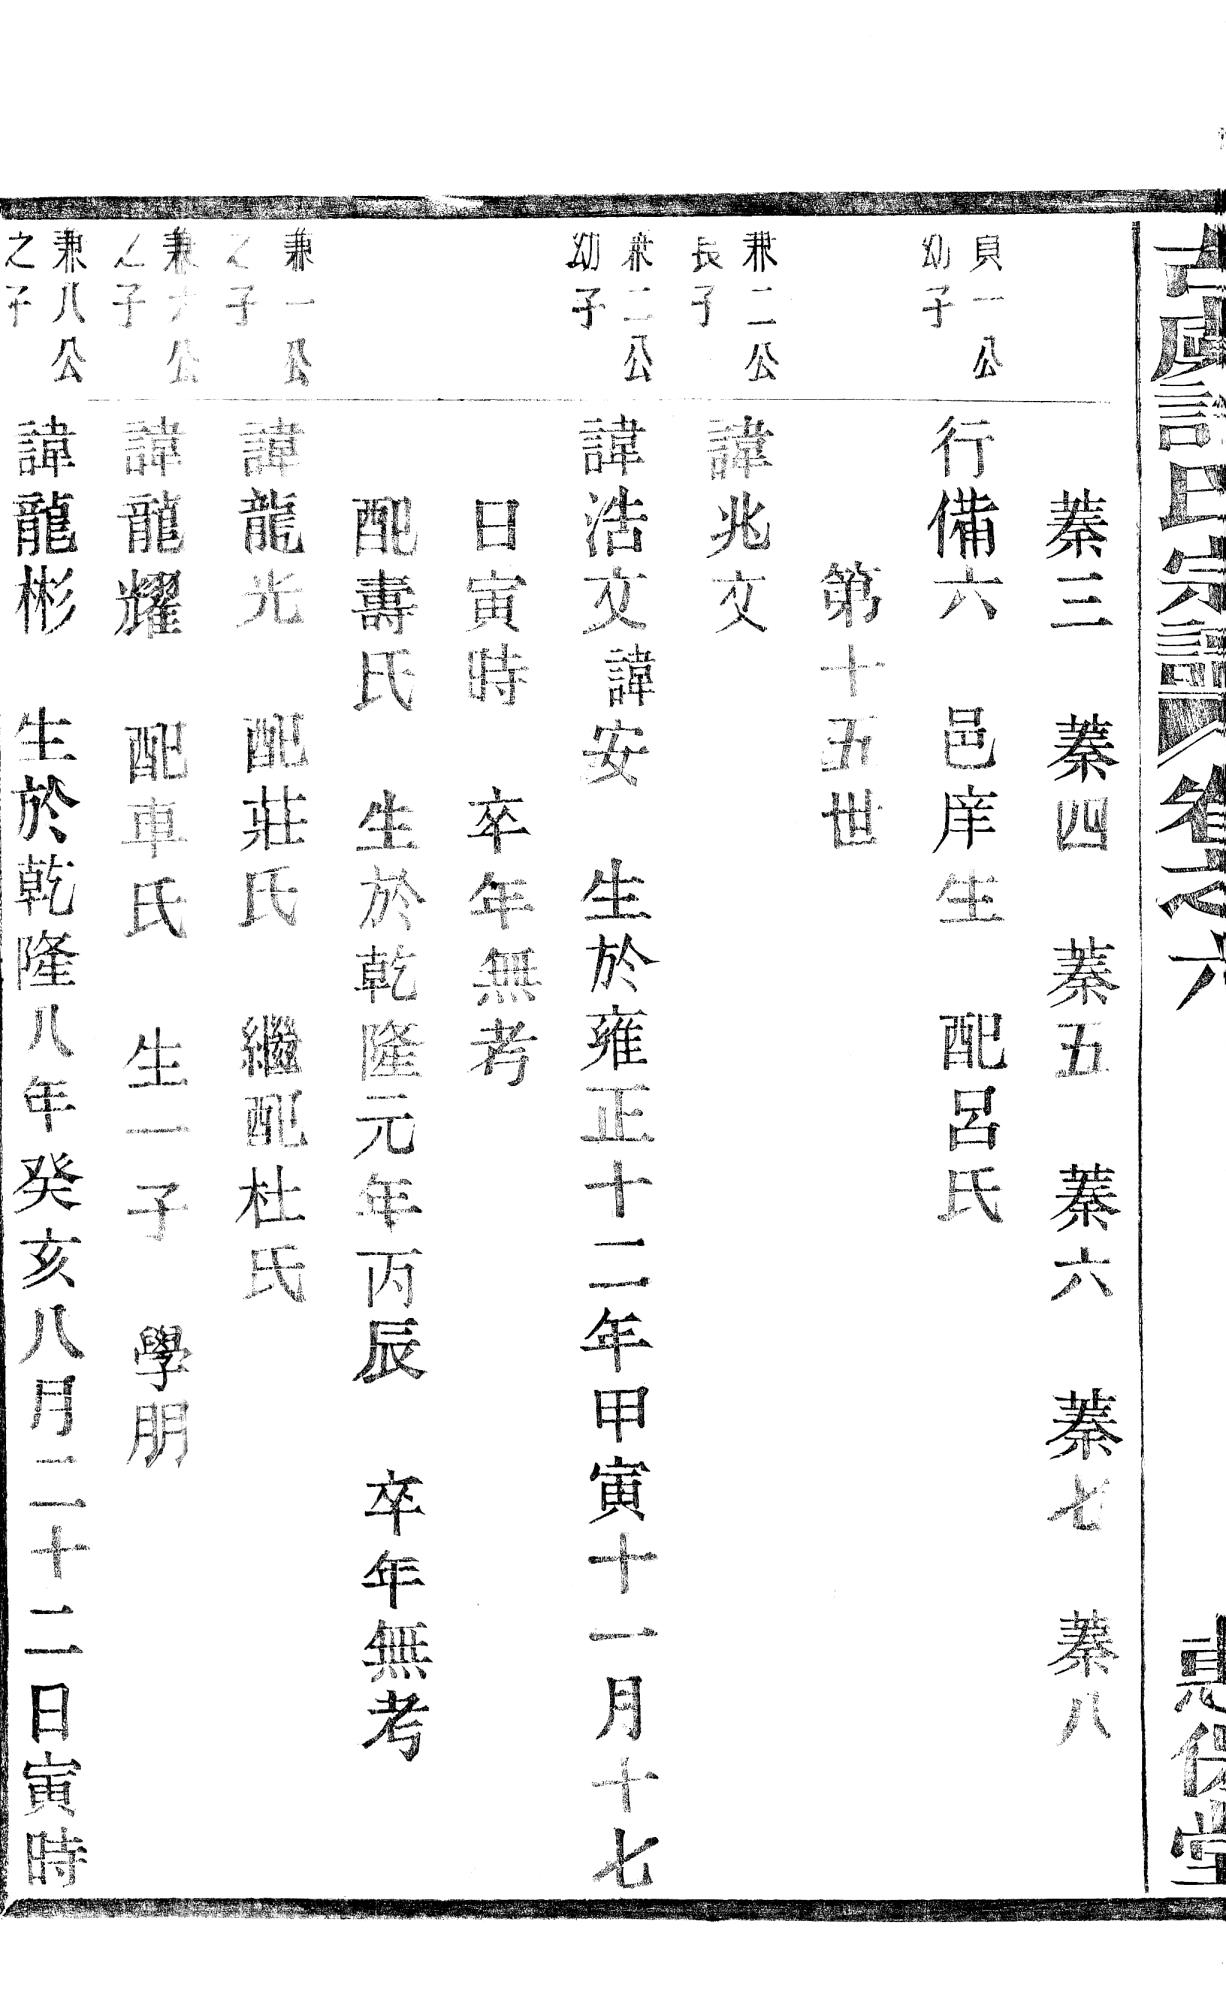 古虞許氏宗譜 卷之六 惇倫堂
蓁三 蓁四 蓁五 蓁六 蓁七 蓁八
貞一公
幼子
行備六 邑庠生 配呂氏
第十五世
兼二公
長子
諱兆文
兼二公
幼子
諱浩文 諱安 生於雍正十二年甲寅十一月十七
日寅時 卒年無考
配壽氏 生於乾隆元年丙辰 卒年無考
兼一公
之子
諱龍光 配莊氏 繼配杜氏
兼六公
之子
諱龍耀 配車氏 生一子 學朋
兼八公
之子
諱龍彬 生於乾隆八年癸亥八月二十二日寅時